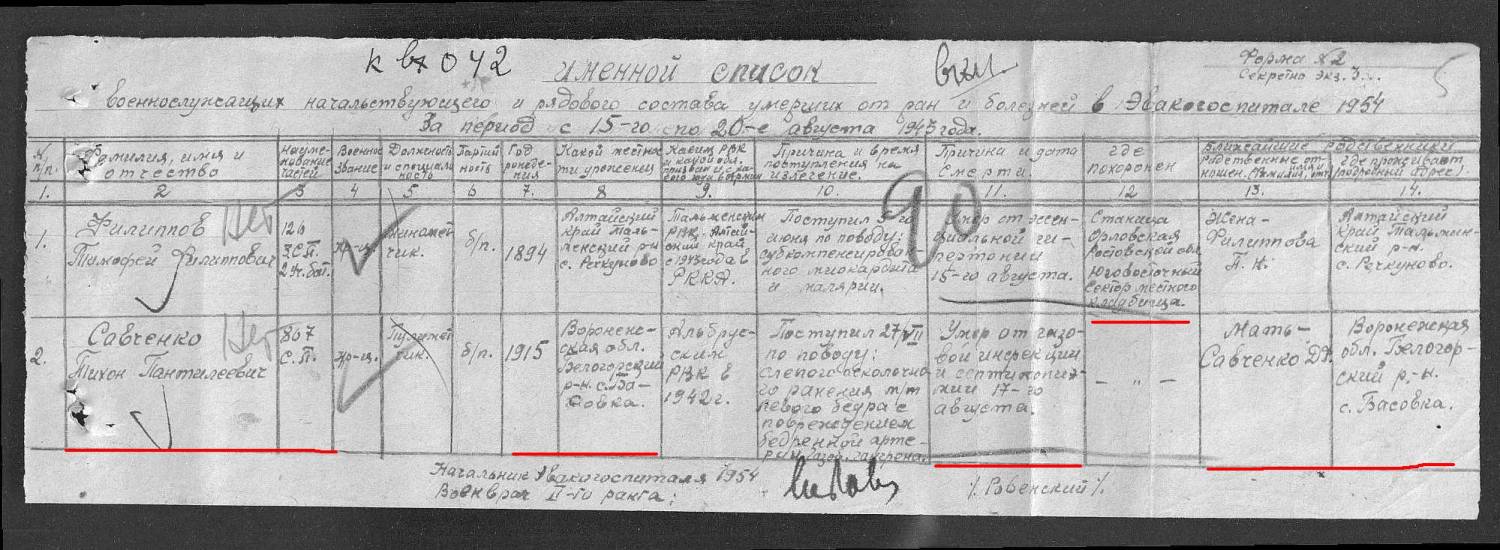 к вх 042
именной список
Форма №2
Секретно экз. 3
военнослужащих начальствующего и рядового состава умерших от ран и болезней в Эвакогоспитале 1954
За период с 15-го по 20-е августа 1943 года.
№ п/п.
Фамилия, имя и
отчество
Наиме-
нование
частей
Военное
звание
Должность
и специаль
ность
Партий
ность
Год
рожде-
ния
Какой местнос
ти уроженец
Каким РВК
и какой обл.
призван
Причина и время
поступления на
излечение.
Причина и дата
смерти.
Где
похоронен
Ближайшие родственники
Родственные от-
ношен.
где проживают
(подробный адрес)
1. 2 3 4 5 6 7. 8 9. 10. 11. 12 13. 14.
90
1.
Филиппов
Тимофей Филиппович
Нет
126
З.С.П.
2 уч. бат.
Кр-ц.
Миномет
чик.
б/п.
1894
Алтайский
край Таль-
менский р-н
с. Речкуново
Тальменским
РВК, Алтай-
ский край
с 1943 года в
РККА.
Поступил 9-го
июня по поводу:
субкомпенсирован
ного миокардита
и малярии.
Умер от эссен-
циальной ги-
пертонии
15-го августа.
Станица
Орловская
Ростовской обл.
Юговосточный
сектор местного
кладбища.
Жена-
Филиппова
Алтайский
край Тальмен-
ский р-н.
с. Речкуново.
2.
Савченко
Тихон Пантилеевич
Нет
867
С.П.
Кр-ц.
Пулемет
чик.
б/п.
1915
Воронеж-
ская обл.
Белогорский
р-н. с. Ба-
совка.
Эльбрус-
ским
РВК в
1942 г.
Поступил 27/VII
по поводу:
слепого осколочно
го ранения м/т
левого бедра с
повреждением
бедренной арте-
рии, газов. гангрена.
Умер от газо-
вой инфекции
и септикопиэ-
мии 17-го
августа.
— " —
Мать-
Савченко
Воронежская
обл. Белогор-
ский р.-н.
с. Басовка.
Начальник Эвакогоспиталя 1954
Военврач II-го ранга:
/. Ровенский /.